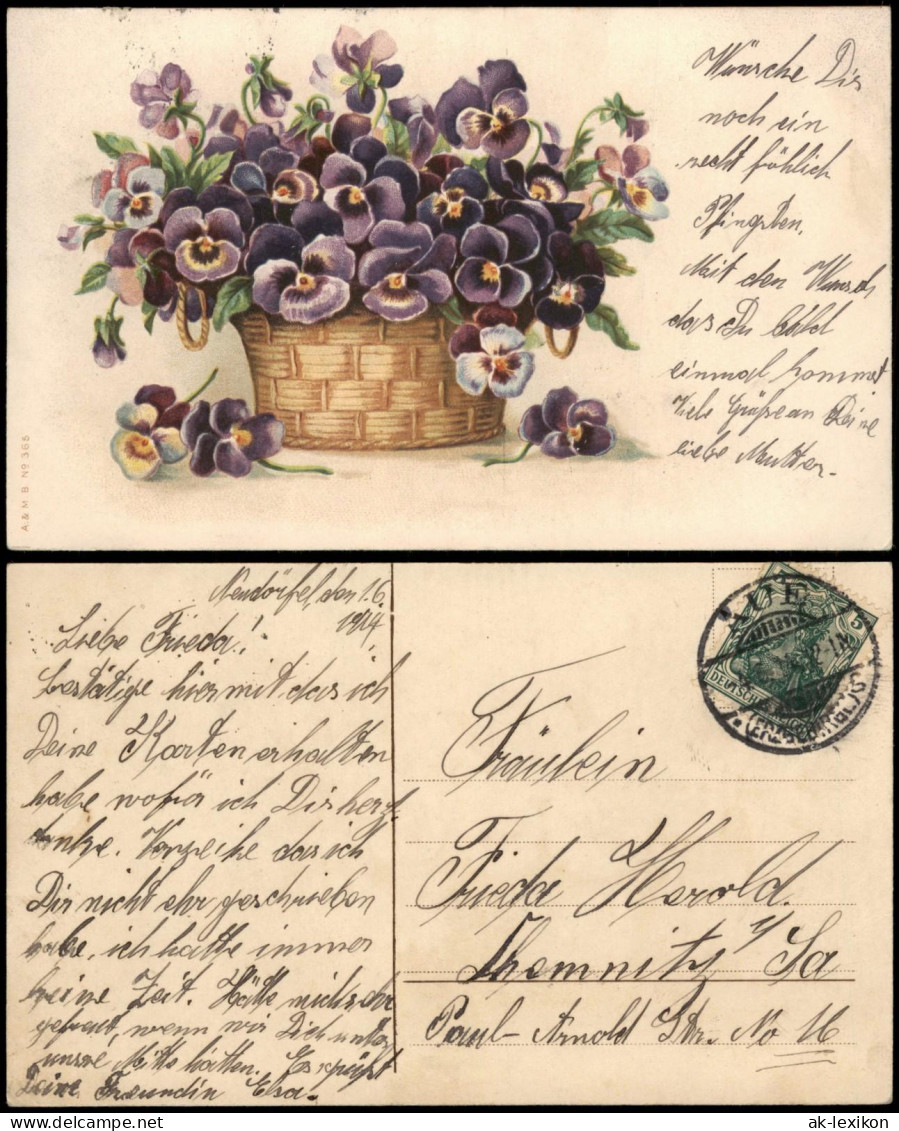 Wünsche Dir
noch ein
recht föhlich
Pfingsten.
Mit den Wunsch
das Du bald
einmal kommst
Viele Grüße an Deine
liebe Mutter.
A. & M. B. No 368
Neudörfel, den 1.6
1914.
Liebe Frieda!
bestätige hiermit das ich
Deine Karten erhalten
habe wofür ich Dir herzl.
danke. Verzeihe das ich
Dir nicht ehr geschrieben
habe, ich hatte immer
keine Zeit. Hätte mich sehr
gefreut, wenn wir Dich unter
unsre Mitte hätten. Es grüßt
Deine Freundin Elsa.
AUE
(ERZGEBIRGE)
DEUTSCHES
5
Fräulein
Frieda Herold.
Chemnitz i/ Sa
Paul-Arnold Str. No 16
ak-lexikon